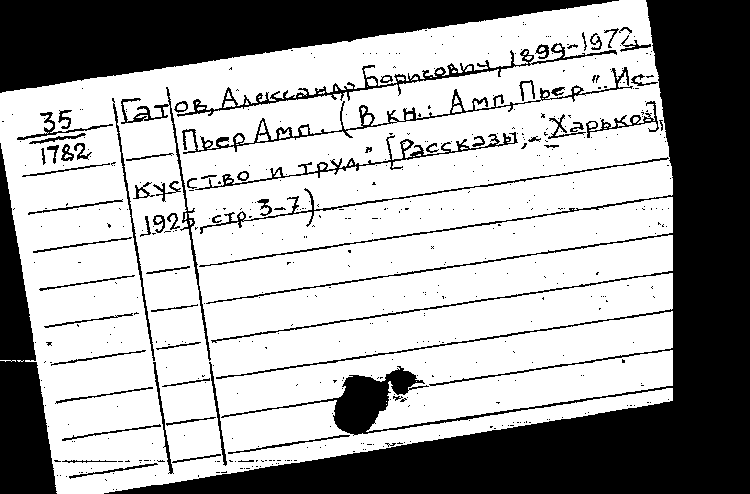 35
1782
Гатов, Александр Борисович, 1899-1972.
Пьер Амп. (В кн.: Амп, Пьер "Ис-
кусство и труд." [Рассказы, - Харьков],
1925, стр. 3-7).